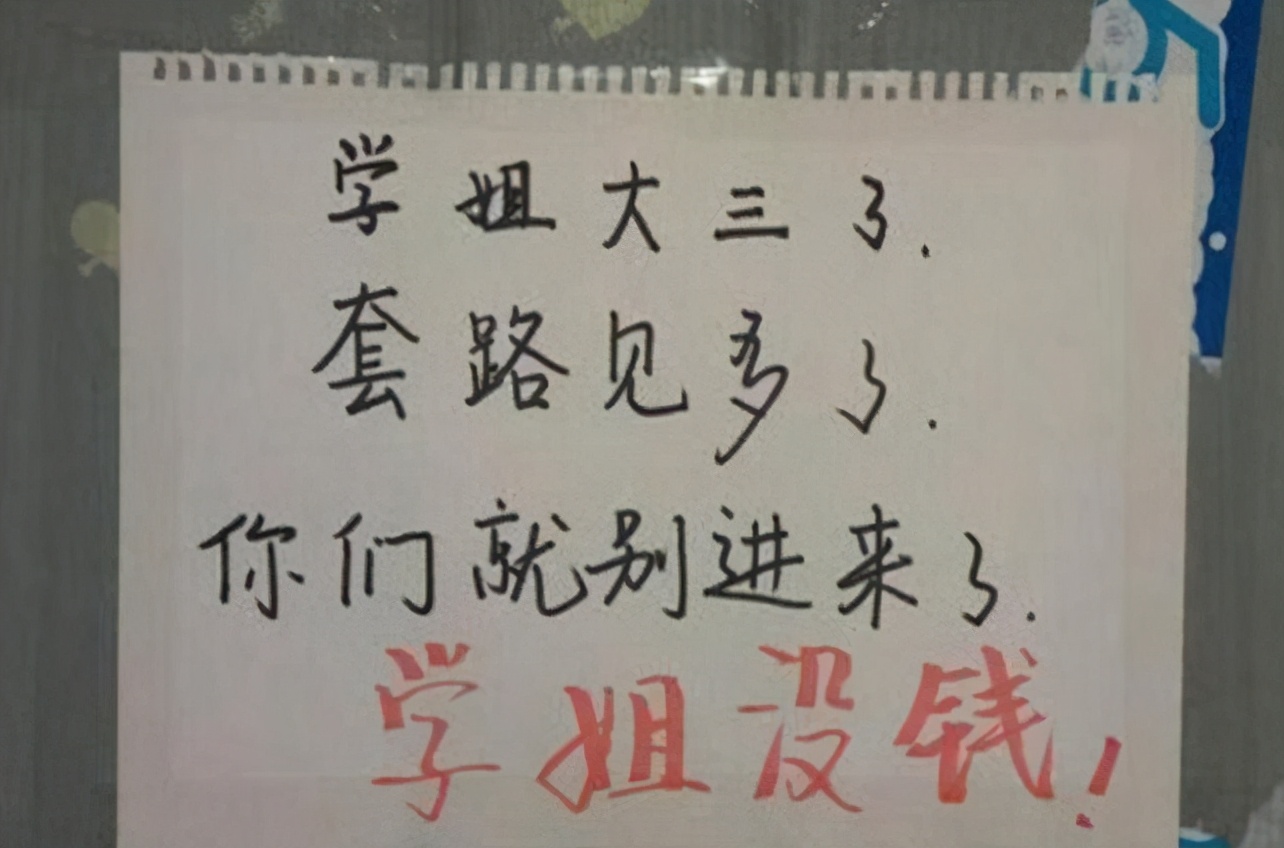 学姐大三了.
套路见多了.
你们就别进来了.
学姐没钱!